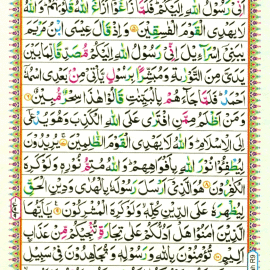 اَنِّىْ رَسُوْلُ اللّٰهِ اِلَيْكُمْ ؕ فَلَمَّا زَاغُوْۤا اَزَاغَ اللّٰهُ قُلُوْبَهُمْ ؕ وَاللّٰهُ
لَا يَهْدِى الْقَوْمَ الْفٰسِقِيْنَ ۝ وَاِذْ قَالَ عِيْسَى ابْنُ مَرْيَمَ
يٰبَنِىْۤ اِسْرَآءِيْلَ اِنِّىْ رَسُوْلُ اللّٰهِ اِلَيْكُمْ مُّصَدِّقًا لِّمَا بَيْنَ
يَدَىَّ مِنَ التَّوْرٰٮةِ وَمُبَشِّرًۢا بِرَسُوْلٍ يَّاْتِىْ مِنْۢ بَعْدِى اسْمُهٗۤ
اَحْمَدُ ؕ فَلَمَّا جَآءَهُمْ بِالْبَيِّنٰتِ قَالُوْا هٰذَا سِحْرٌ مُّبِيْنٌ ۝
وَمَنْ اَظْلَمُ مِمَّنِ افْتَرٰى عَلَى اللّٰهِ الْكَذِبَ وَهُوَ يُدْعٰٓى
اِلَى الْاِسْلَامِ ؕ وَاللّٰهُ لَا يَهْدِى الْقَوْمَ الظّٰلِمِيْنَ ۝ يُرِيْدُوْنَ
لِيُطْفِـُٔوْا نُوْرَ اللّٰهِ بِاَفْوَاهِهِمْ ؕ وَاللّٰهُ مُتِمُّ نُوْرِهٖ وَلَوْ كَرِهَ
الْكٰفِرُوْنَ ۝ هُوَ الَّذِىْۤ اَرْسَلَ رَسُوْلَهٗ بِالْهُدٰى وَدِيْنِ الْحَقِّ
لِيُظْهِرَهٗ عَلَى الدِّيْنِ كُلِّهٖ وَلَوْ كَرِهَ الْمُشْرِكُوْنَ ۝ يٰۤاَيُّهَا
الَّذِيْنَ اٰمَنُوْا هَلْ اَدُلُّكُمْ عَلٰى تِجَارَةٍ تُنْجِيْكُمْ مِّنْ عَذَابٍ
اَلِيْمٍ ۝ تُؤْمِنُوْنَ بِاللّٰهِ وَرَسُوْلِهٖ وَتُجَاهِدُوْنَ فِىْ سَبِيْلِ